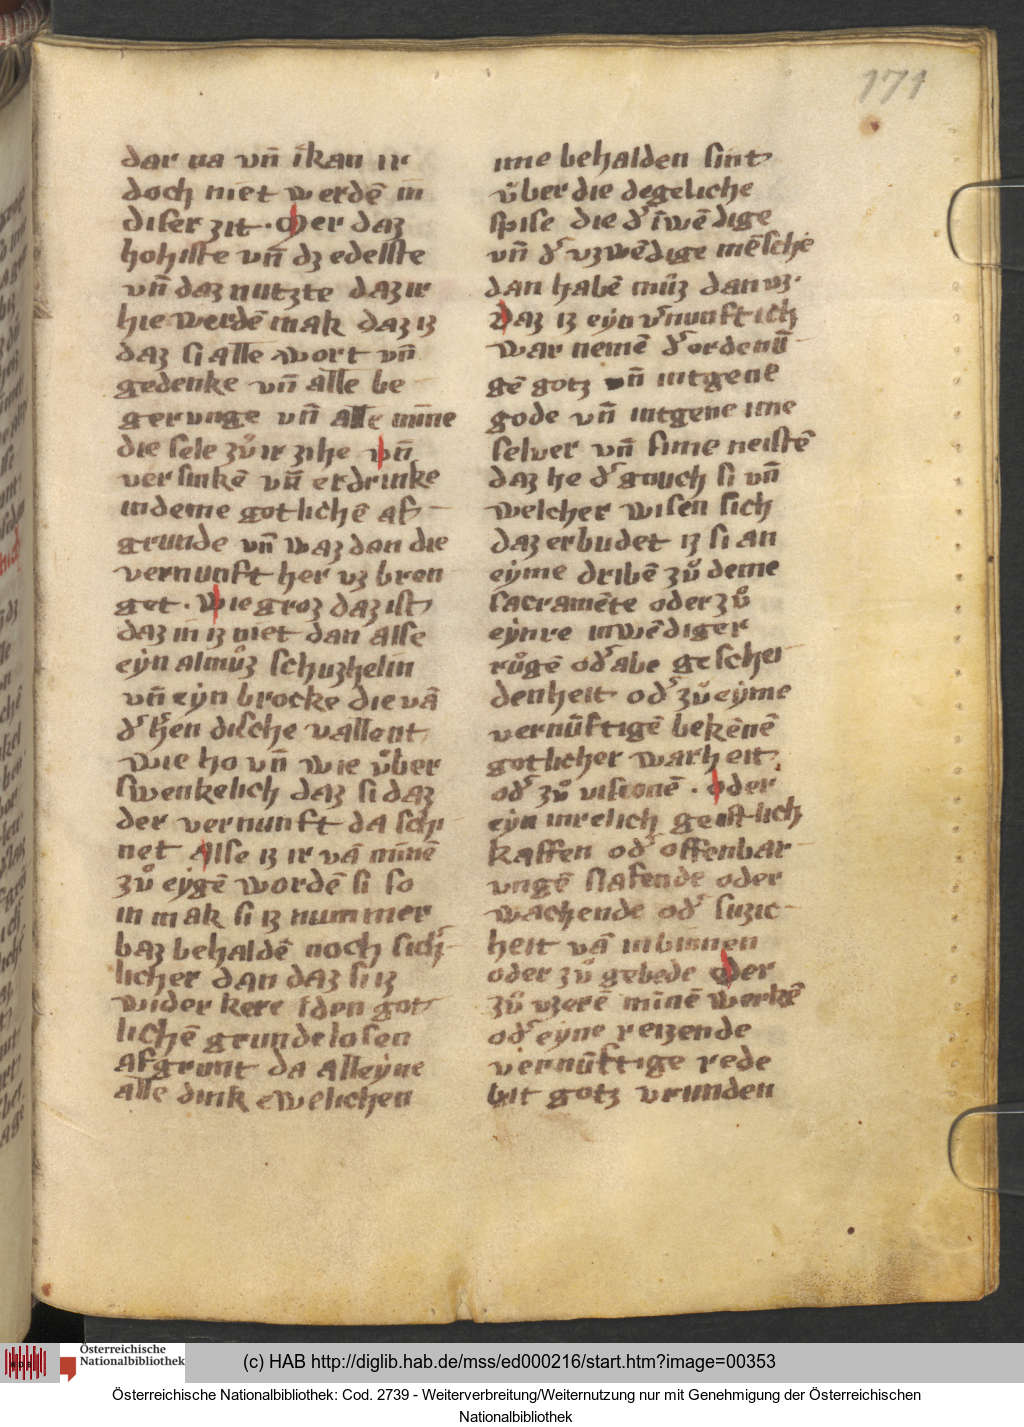 171
dar na vn̄ ikan ir
doch niet werdē in
diser zit · Mer daz
hohiste vn̄ dz edelste
vn̄ daz nutzte daz ir
hie werdē mak daz iz
daz si alle wort vn̄
gedenke vn̄ alle be
gerunge vn̄ alle mīne
die sele zuͦ ir zihe vn̄
versinkē vn̄ erdrinke
in deme gotlichē af
grunde vn̄ waz dan die
vernunft her vz bren
get · Wie groz daz ist
daz in iz niet dan alse
eyn almuͦz schuzhelin
vn̄ eyn brocke die vā
d' h'ren dische vallent
wie ho vn̄ wie vͦber
swenkelich daz si daz
der vernunft da schi
net Alse iz ir vā mīnē
zuͦ eygē wordē si so
in mak si iz nummer
baz behaldē noch sich'
licher dan daz si iz
wider kere īden got
lichē grundelosen
afgrunt da alleyne
alle dink ewelichen
inne behalden sint
vͦber die degeliche
spise die d' īwēdige
vn̄ d' vzwēdige mēsche
dan habē muͦz dan vz ·
Daz iz eyn v'nunftich
war nemē d' ordenū
gē gotz vn̄ intgene
gode vn̄ intgene ime
selver vn̄ sime neistē
daz he d' gnuch si vn̄
welcher wisen sich
daz erbudet iz si an
eyme dribē zuͦ deme
sacramēte oder zuͦ
eynre inwēdiger
ruͦgē od' abe geschei
denheit od' zuͦ eyme
vernūftigē bekēnē
gotlicher warheit
od' zuͦ visionē · oder
eyn inrelich geistlich
kaffen od' offenbar
ungē slafende oder
wachende od' suzic
heit vā inbinnen
oder zuͦ gebede Oder
zuͦ vzerē mīnē werkē
od' eyne reizende
vernūftige rede
bit gotz vrunden
Österreichische
Nationalbibliothek
(c) HAB http://diglib.hab.de/mss/ed000216/start.htm?image=00353
Österreichische Nationalbibliothek: Cod. 2739 - Weiterverbreitung/Weiternutzung nur mit Genehmigung der Österreichischen
Nationalbibliothek